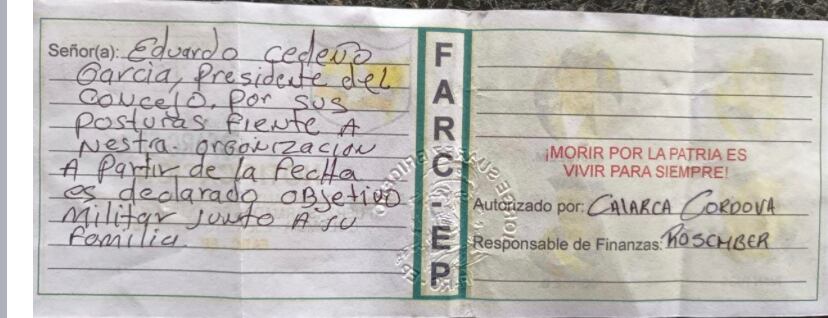 Señor(a): Eduardo Cedeño
Garcia, Presidente del
Concejo. Por sus
Posturas Fiente A
Nestra. organización
A Partir de la Fecha
es declarado OBJetivo
Militar Junto A su
Familia.
FARC-EP
¡MORIR POR LA PATRIA ES
VIVIR PARA SIEMPRE!
Autorizado por: CALARCA CORDOVA
Responsable de Finanzas: ROSCMBER